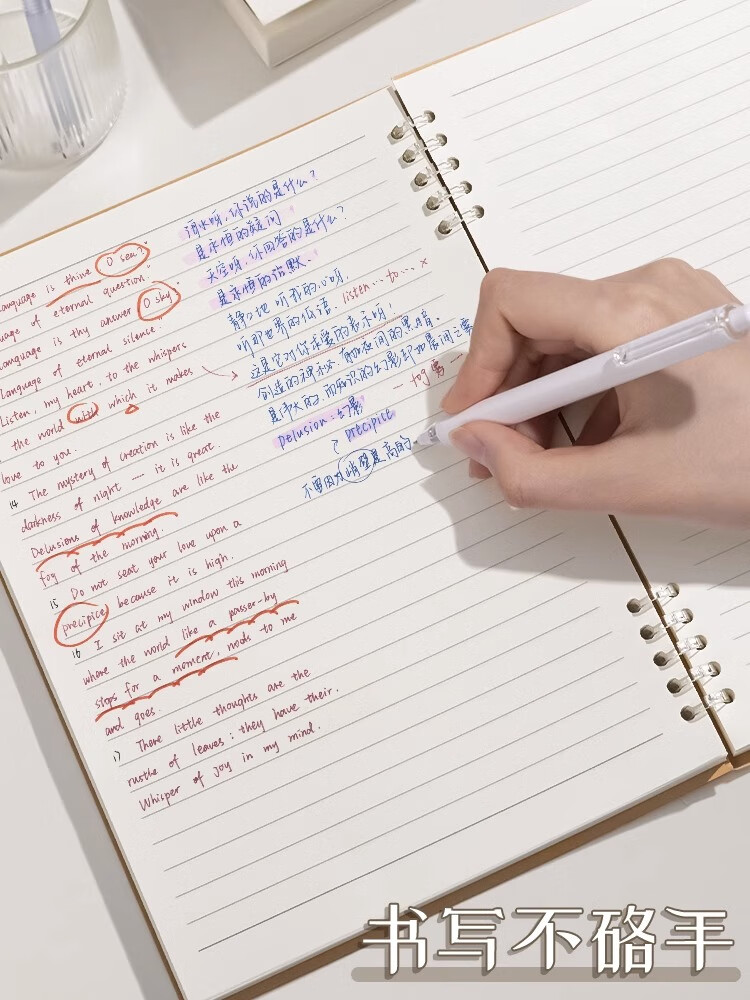 language is thine O sea?"
language of eternal question."
language is thy answer O sky
language of eternal silence."
Listen, my heart, to the whispers
the world with which it makes
love to you.
14 The mystery of creation is like the
darkness of night --- it is great.
Delusions of knowledge are like the
fog of the morning.
15 Do not seat your love upon a
precipice because it is high.
16 I sit at my window this morning
where the world like a passer-by
stops for a moment, nods to me
and goes.
17 There little thoughts are the
rustle of leaves; they have their.
Whisper of joy in my mind.
海水呀,你说的是什么?
是永恒的疑问
天空呀,你回答的是什么?
是永恒的沉默.
静静地 听我的心呀,
听那世界的低语 listen...to...×
这是它对你求爱的表示呀,
创造的神秘,有如夜间的黑暗.
是伟大的,而知识的幻影却如晨间之雾
Delusion:幻影 — fog 雾 —
precipice
不要因为峭壁是高的
书写不硌手